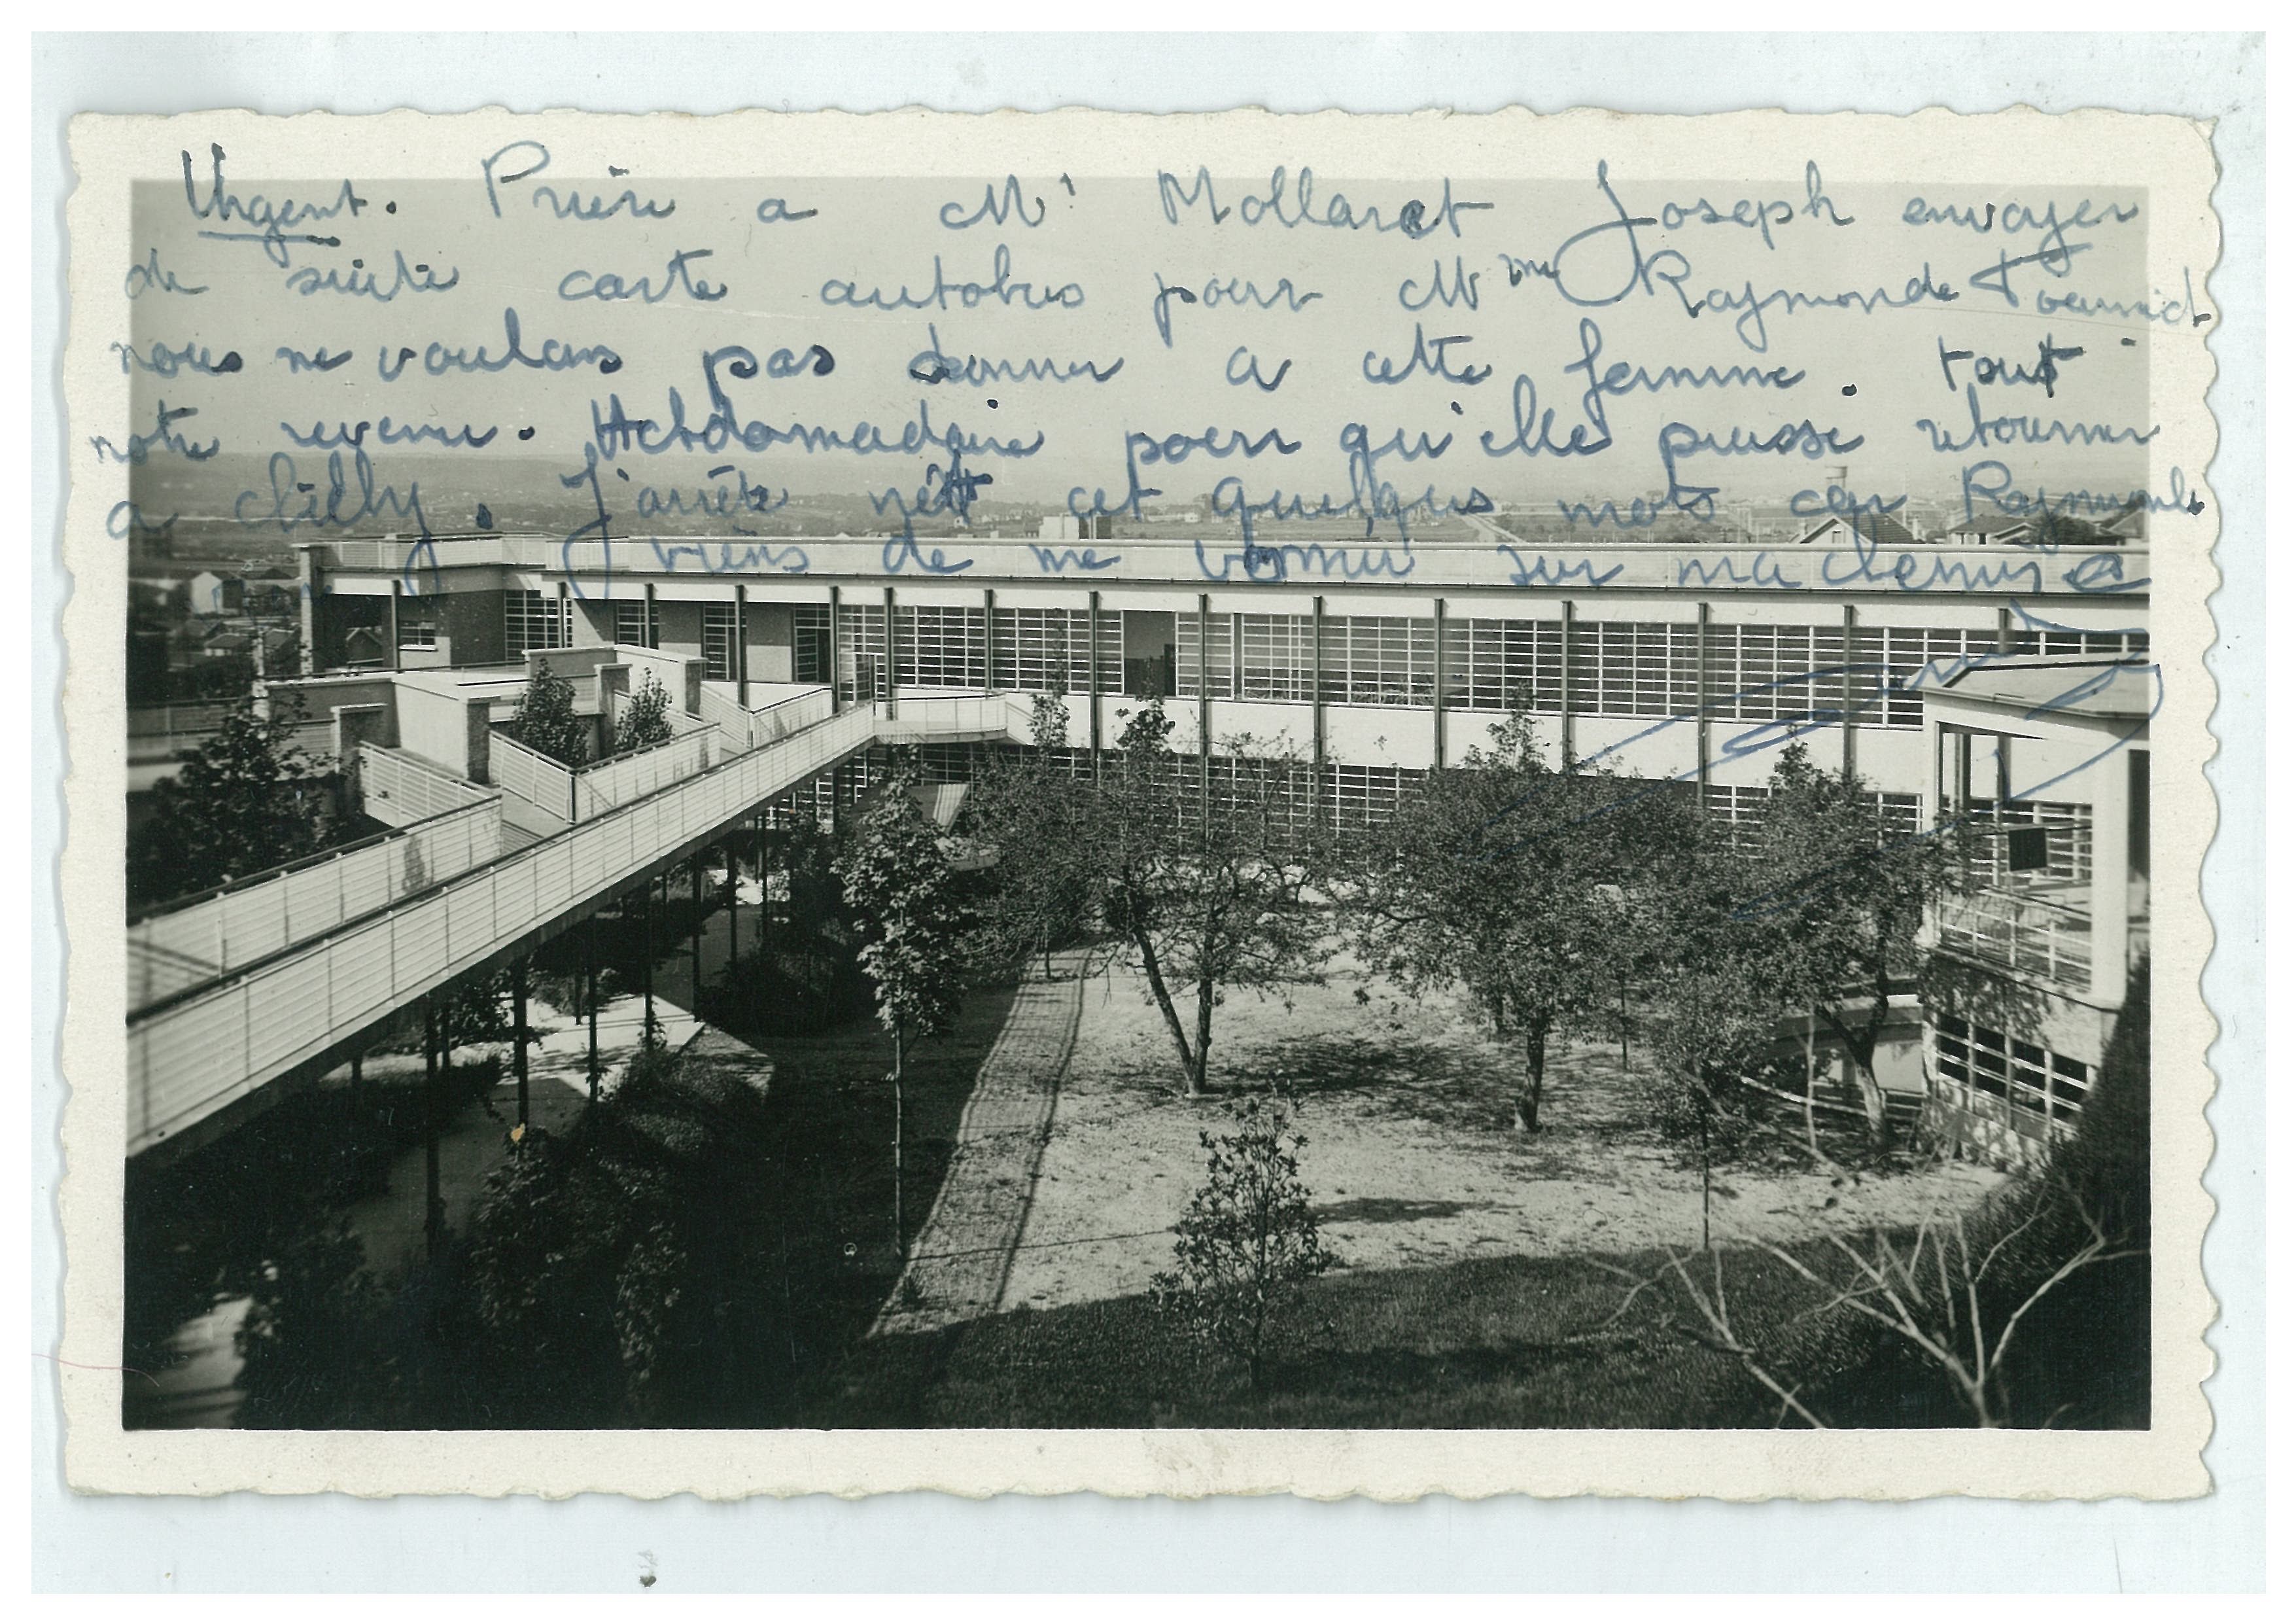 Urgent. Prière a Mr Mollaret Joseph envoyer
de suite carte autobus pour Mme Raymonde
nous ne voulons pas donner a cette femme. tout
notre revenu. Hebdomadaire pour qu'elle puisse retourner
a clichy. J'arrête nett cet quelques mots car Raymonde
viens de me vomir sur ma chemise